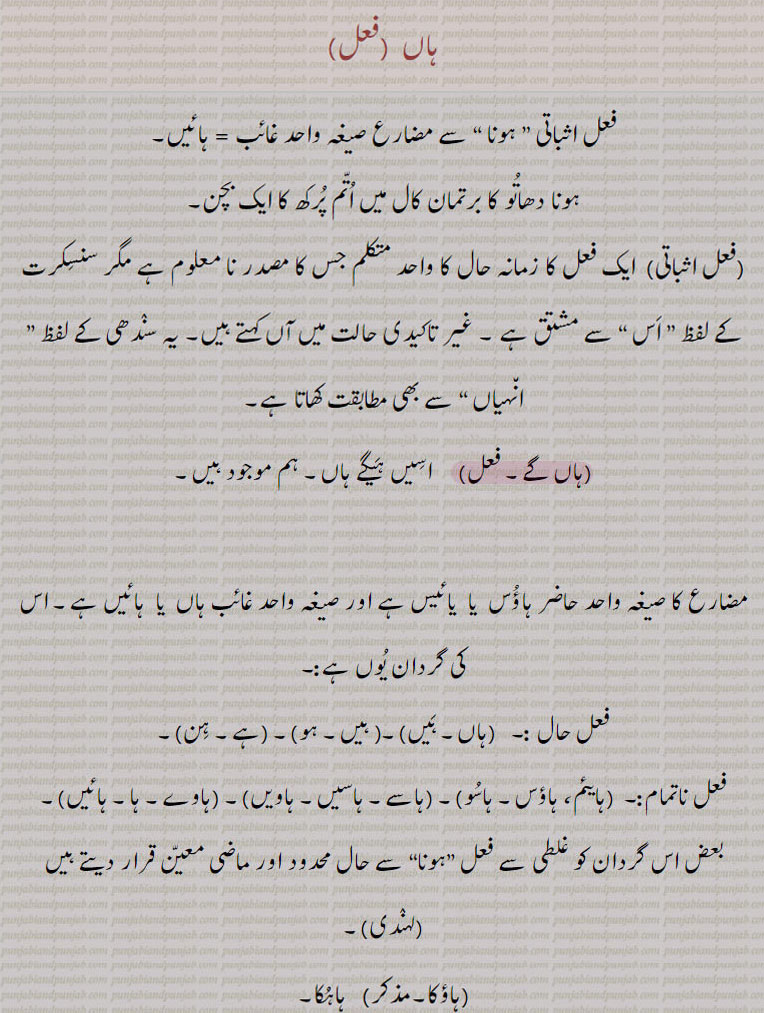 ہاں (فعل)
فعل اثباتی ” ہونا “ سے مضارع صیغہ واحد غائب = ہائیں۔
ہونا دھاتُو کا برتمان کال میں اُتّم پُرکھ کا ایک بچن۔
(فعل اثباتی) ایک فعل کا زمانہ حال کا واحد متکلم جس کا مصدر نا معلوم ہے مگر سنسکِرت
کے لفظ ” اَس “ سے مشتق ہے ۔ غیر تاکیدی حالت میں آں کہتے ہیں۔ یہ سندھی کے لفظ ”
انّہیاں “ سے بھی مطابقت کھاتا ہے۔
(ہاں گے ۔ فعل) اسِیں ہَیگے ہاں ۔ ہم موجود ہیں ۔
مضارع کا صیغہ واحد حاضر ہاؤُس یا یائیس ہے اور صیغہ واحد غائب ہاں یا ہائیں ہے ۔ اس
کی گردان یُوں ہے:۔
فعل حال :۔ (ہاں ۔ ہَیں) ۔( ہیں ۔ ہو) ۔ (ہے ۔ ہِن) ۔
فعل ناتمام:۔ (ہایئم، ہاؤس ۔ ہاسُو) ۔ (ہاسے ۔ ہاسیں ۔ ہاویں) ۔ (ہاوے ۔ ہا ۔ ہائیں) ۔
بعض اس گردان کو غلطی سے فعل ”ہونا“ سے حال محدود اور ماضی معیّن قرار دیتے ہیں
(لہندی) ۔
(ہاؤکا۔مذکر) ہاہُکا۔